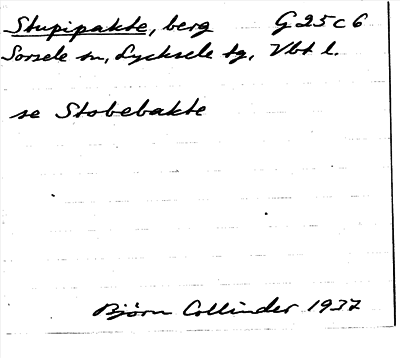 Stupipakte, berg G25c6
Sorsele sn, Lycksele tg, Vbt l.
se Stobebakte
Björn Collinder 1937